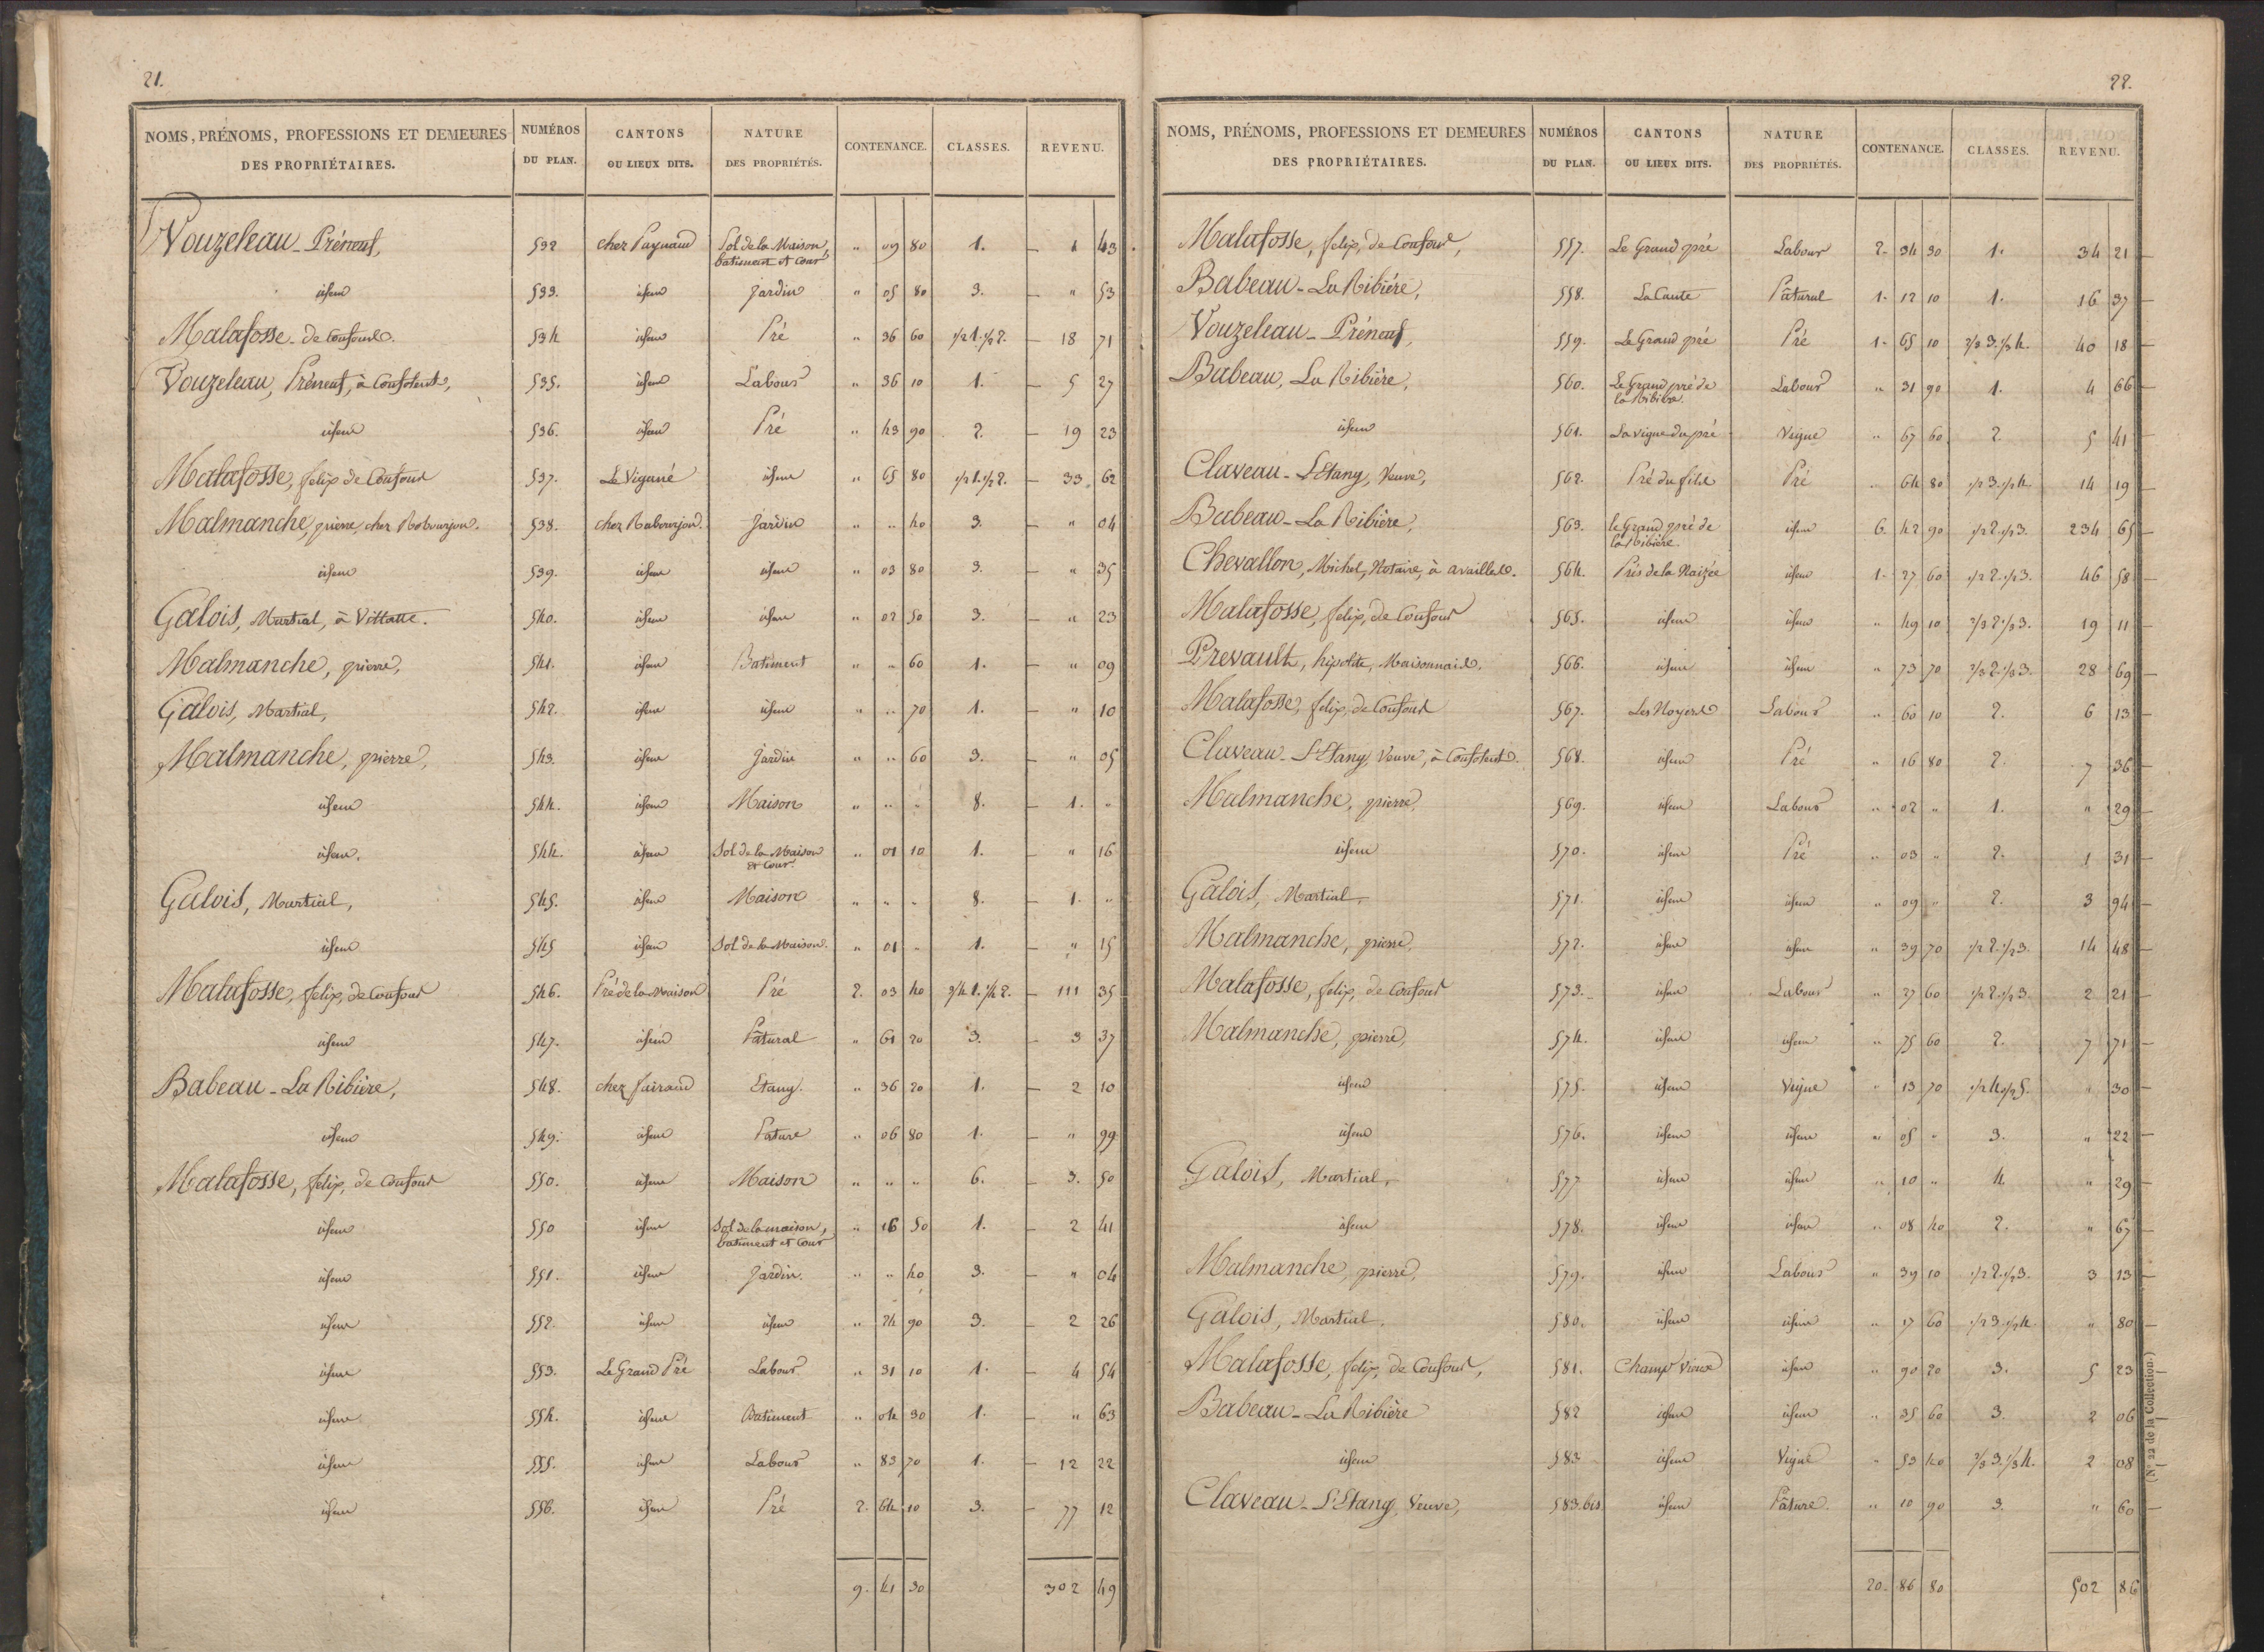 21.
NOMS, PRÉNOMS, PROFESSIONS ET DEMEURES DES PROPRIÉTAIRES. NUMÉROS DU PLAN. CANTONS OU LIEUX DITS. NATURE DES PROPRIÉTÉS. CONTENANCE. CLASSES. REVENU.
Vouzeleau-Préneuf, 532 chez Paynaud Sol de la Maison, batiment et Cour " 09 80 1. 1 43
idem 533. idem Jardin " 05 80 3. " 53
Malafosse-de Confour. 534 idem Pré " 36 60 1/2 1. 1/2 2. 18 71
Vouzeleau, Préneuf, à Confolent, 535. idem Labour " 36 10 1. 5 27
idem 536. idem Pré " 43 90 2. 19 23
Malafosse, felip de Confour 537. Le Vigané idem " 65 80 1/2 1. 1/2 2. 33 62
Malmanche, pierre, chez Rabourjon. 538. chez Rabourjon. Jardin " " 40 3. " 04
idem 539. idem idem " 03 80 3. " 35
Galois, Martial, à Villatte. 540. idem idem " 02 50 3. " 23
Malmanche, pierre, 541. idem Batiment " " 60 1. " 09
Galois, Martial, 542. idem idem " " 70 1. " 10
Malmanche, pierre, 543. idem Jardin " " 60 3. " 05
idem 544. idem Maison " " " 8. 1. "
idem. 544. idem Sol de la Maison et Cour " 01 10 1. " 16
Galois, Martial, 545. idem Maison " " " 8. 1. "
idem 545 idem Sol de la Maison. " 01 " 1. " 15
Malafosse, felip, de Confour 546. Pré de la Maison Pré 2. 03 40 3/4 1. 1/4 2. 111 35
idem 547. idem Pâtural " 61 20 3. 3 37
Babeau-La Ribière, 548. chez Jairaud Etang. " 36 20 1. 2 10
idem 549. idem Pature " 06 80 1. " 99
Malafosse, felip, de Confour 550. idem Maison " " " 6. 3. 50
idem 550 idem Sol de la maison, batiment et Cour " 16 50 1. 2 41
idem 551. idem Jardin. " " 40 3. " 04
idem 552. idem idem " 24 90 3. 2 26
idem 553. Le Grand Pré Labour " 31 10 1. 4 54
idem 554. idem Batiment " 04 30 1. " 63
idem 555. idem Labour " 83 70 1. 12 22
idem 556. idem Pré 2. 64 10 3. 77 12
9. 41 30 302 49
22.
NOMS, PRÉNOMS, PROFESSIONS ET DEMEURES DES PROPRIÉTAIRES. NUMÉROS DU PLAN. CANTONS OU LIEUX DITS. NATURE DES PROPRIÉTÉS. CONTENANCE. CLASSES. REVENU.
Malafosse, felip, de Confour, 557. Le Grand pré Labour 2. 34 30 1. 34 21
Babeau-La Ribière, 558. La Caute Pâtural 1. 12 10 1. 16 37
Vouzeleau-Préneuf, 559. Le Grand pré Pré 1. 65 10 2/3 3. 1/3 4. 40 18
Babeau, La Ribière, 560. Le Grand pré de la Ribière. Labour " 31 90 1. 4 66
idem 561. La vigne du pré Vigne " 67 60 2. 5 41
Claveau-L'Etang, Veuve, 562. Pré du filet Pré " 64 80 1/2 3. 1/2 4. 14 19
Babeau-La Ribière, 563. le Grand pré de la Ribière. idem 6. 42 90 1/2 2. 1/2 3. 234 65
Chevallon, Michel, Notaire, à availles. 564. Prés de la Naizée idem 1. 27 60 1/2 2. 1/2 3. 46 58
Malafosse, felip, de Confour 565. idem idem " 49 10 2/3 2. 1/3 3. 19 11
Prevault, hipolite, Maisonnais. 566. idem idem " 73 70 2/3 2. 1/3 3. 28 69
Malafosse, felip, de Confour 567. Les Noyers Labour " 60 10 2. 6 13
Claveau-L'Etang, Veuve, à Confolent. 568. idem Pré " 16 80 2. 7 36
Malmanche, pierre, 569. idem Labour " 02 " 1. " 29
idem 570. idem Pré " 03 " 2. 1 31
Galois, Martial 571. idem idem " 09 " 2. 3 94
Malmanche, pierre, 572. idem idem " 39 70 1/2 2. 1/2 3. 14 48
Malafosse, felip, de Confour 573. idem Labour " 27 60 1/2 2. 1/2 3. 2 21
Malmanche, pierre, 574. idem idem " 75 60 2. 7 71
idem 575. idem Vigne " 13 70 1/2 4. 1/2 5. " 30
idem 576. idem idem " 05 " 3. " 22
Galois, Martial, 577 idem idem " 10 " 4. " 29
idem 578. idem idem " 08 40 2. " 67
Malmanche, pierre, 579. idem Labour " 39 10 1/2 2. 1/2 3. 3 13
Galois, Martial. 580. idem idem " 17 60 1/2 3. 1/2 4. " 80
Malafosse, felip, de Confour, 581. Champ Vieux idem " 90 20 3. 5 23
Babeau-La Ribière 582 idem idem " 35 60 3. 2 06
idem 583 idem Vigne " 53 40 2/3 3. 1/3 4. 2 08
Claveau-L'Etang, Veuve, 583.bis idem Pâture " 10 90 3. " 60
20. 86 80 502 86
(N° 22 de la Collection.)